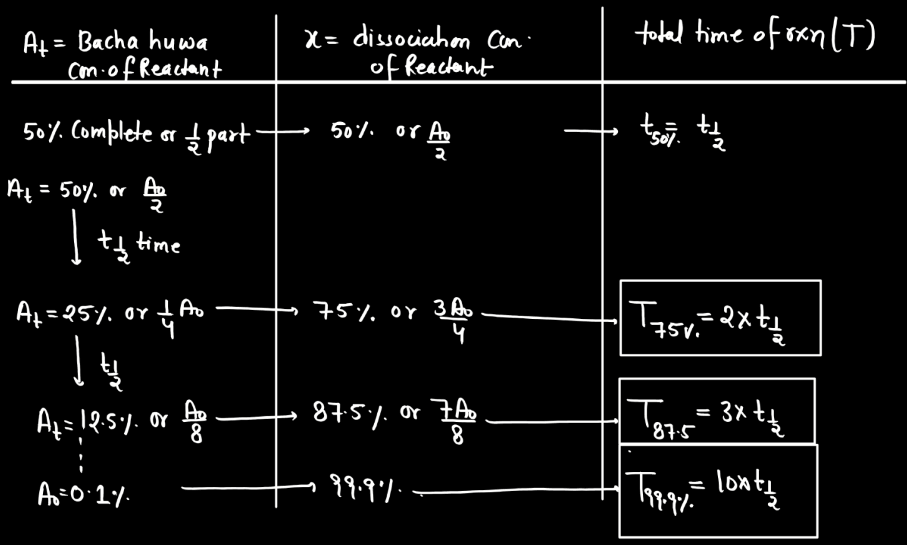 At = Bacha huwa
Con. of Reactant
x = dissociation Con.
of Reactant
total time of rxn (T)
50% Complete or 1/2 part → 50% or A0/2 → t50% = t1/2
At = 50% or A0/2
↓ t1/2 time
At = 25% or 1/4 A0 → 75% or 3A0/4 → T75% = 2 x t1/2
↓ t1/2
At = 12.5% or A0/8 → 87.5% or 7A0/8 → T87.5 = 3 x t1/2
A0 = 0.1% → 99.9% → T99.9% = 10 x t1/2